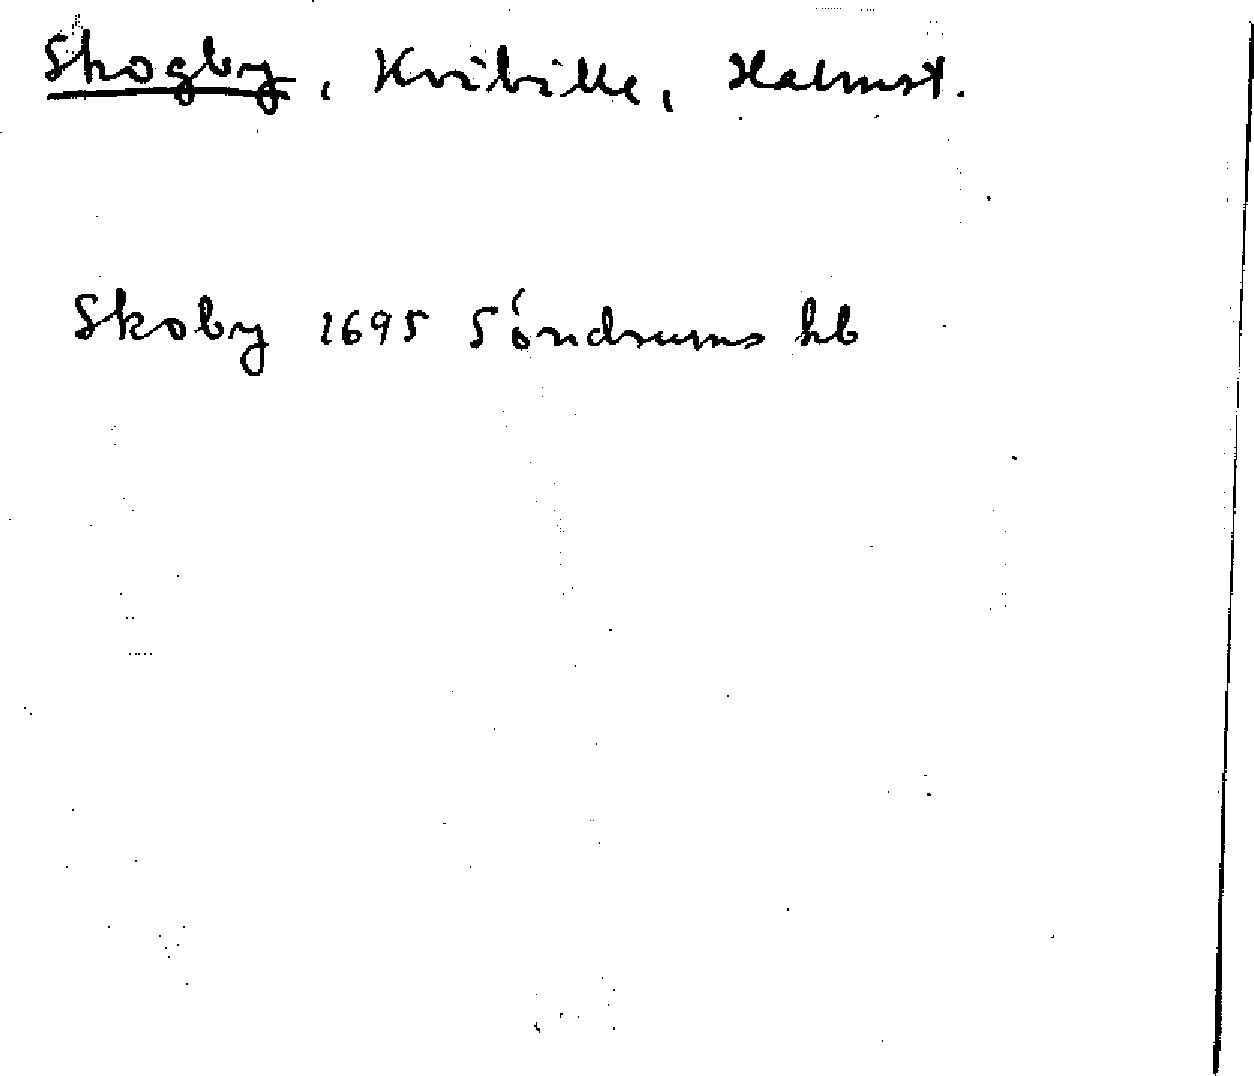 Skogby, Kvibille, Halmst.
Skoby 1695 Söndrums hb